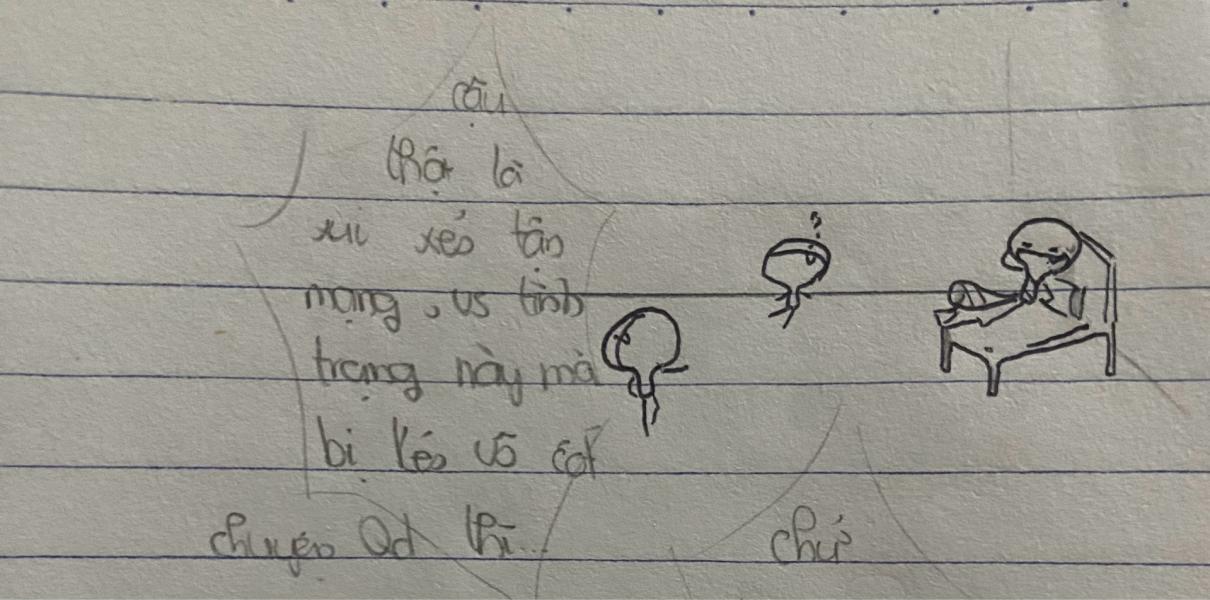 cậu
thật là
xui xẻo tận
mạng, vs tình
trạng này mà
bị kéo vô cốt
chuyện Qd thì...
chứ
?